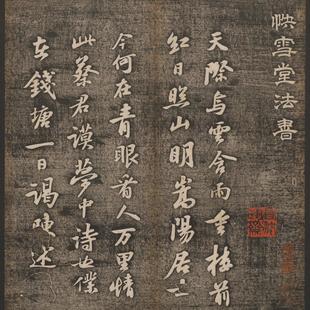 快雪堂法書
天際烏雲含雨重樓前
紅日照山明嵩陽居士
今何在青眼看人万里情
此蔡君謨夢中詩也僕
在錢塘一日謁陳述